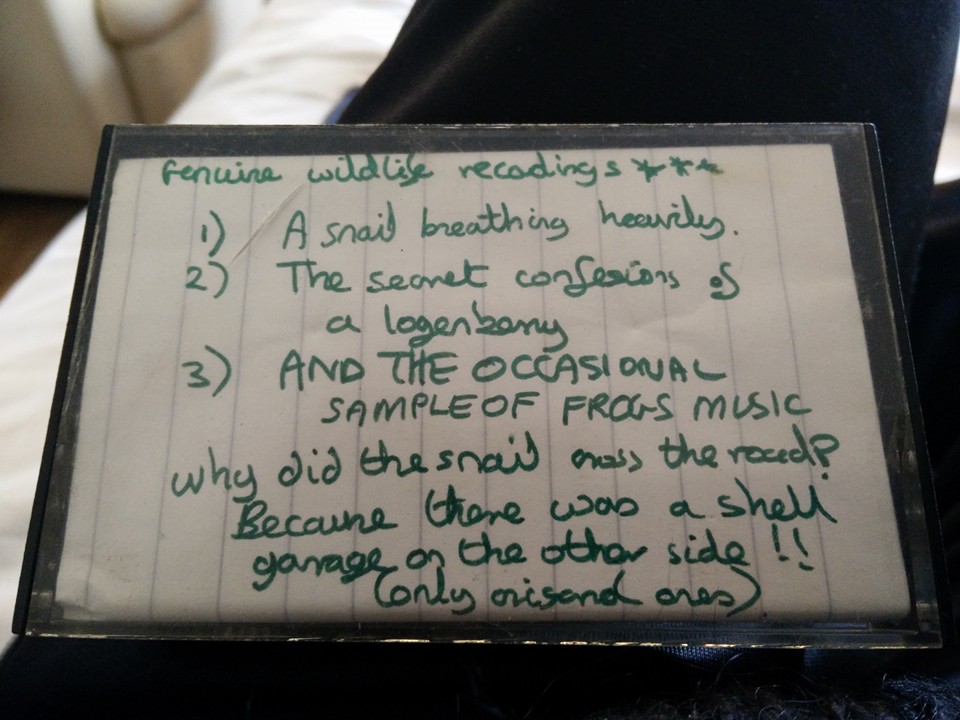 Genuine wildlife recodings ***
1) A snail breathing heavily.
2) The secret confesions of
a logenberry
3) AND THE OCCASIONAL
SAMPLE OF FROGS MUSIC
why did the snail cross the road?
Because there was a shell
garage on the other side !!
(only ones)